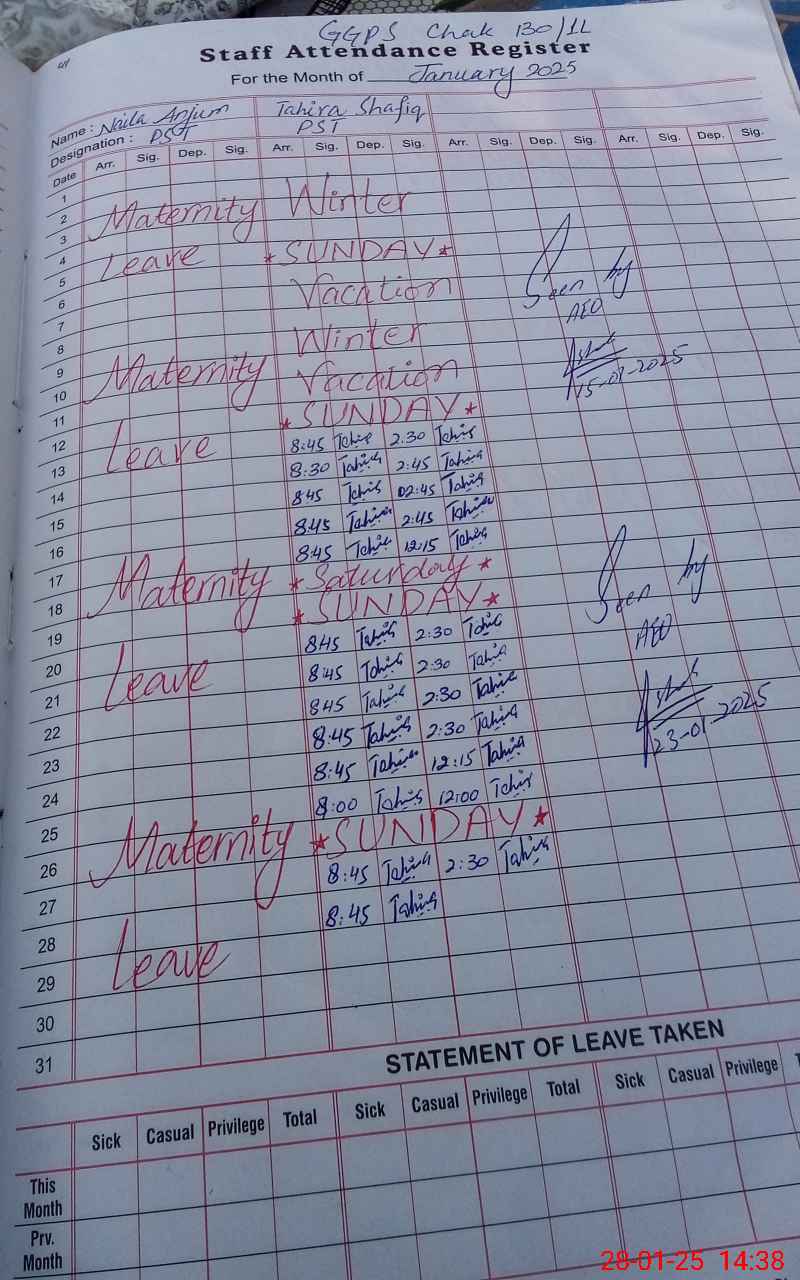 GGPS Chak 130/1L
Staff Attendance Register
For the Month of January 2025
Name : Naila Anjum Tahira Shafiq
Designation : PST PST
Date Arr. Sig. Dep. Sig. Arr. Sig. Dep. Sig. Arr. Sig. Dep. Sig. Arr. Sig. Dep. Sig.
1
2 Maternity Winter
3
4 Leave * SUNDAY *
5
6 Vacation Seen by
7 AEO
8 Winter
9 Maternity Vacation 15-01-2025
10
11 * SUNDAY *
12 Leave 8:45 Tahira 2:30 Tahira
13 8:30 Tahira 2:45 Tahira
14 8:45 Tahira 02:45 Tahira
15 8:45 Tahira 2:45 Tahira
16 8:45 Tahira 12:15 Tahira
17 Maternity * Saturday *
18 * SUNDAY * Seen by
19 8:45 Tahira 2:30 Tahira
20 Leave 8:45 Tahira 2:30 Tahira AEO
21 8:45 Tahira 2:30 Tahira
22 8:45 Tahira 2:30 Tahira
23 8:45 Tahira 12:15 Tahira 23-01-2025
24 8:00 Tahira 12:00 Tahira
25 Maternity * SUNDAY *
26 8:45 Tahira 2:30 Tahira
27 8:45 Tahira
28 Leave
29
30
31
STATEMENT OF LEAVE TAKEN
Sick Casual Privilege Total Sick Casual Privilege Total Sick Casual Privilege
This Month
Prv. Month
28-01-25 14:38